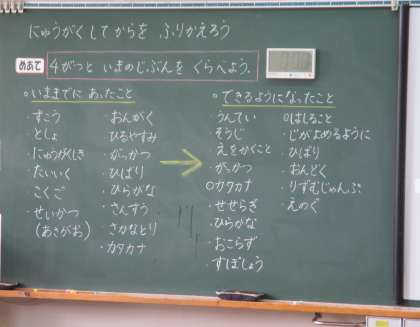 にゅうがくしてからを ふりかえろう
めあて
4がつと いまのじぶんを くらべよう。
○いままでに あったこと
・ずこう
・としょ
・にゅうがくしき
・たいいく
・こくご
・せいかつ
(あさがお)
・おんがく
・ひるやすみ
・がっかつ
・ひばり
・ひらがな
・さんすう
・さかなとり
・カタカナ
○できるようになったこと
・うんてい
・そうじ
・えをかくこと
・がっかつ
○カタカナ
・せせらぎ
・ひらがな
・おこらず
・すばしょう
○はしること
・じがよめるように
・ひばり
・おんどく
・りずむじゃんぷ
・えのぐ